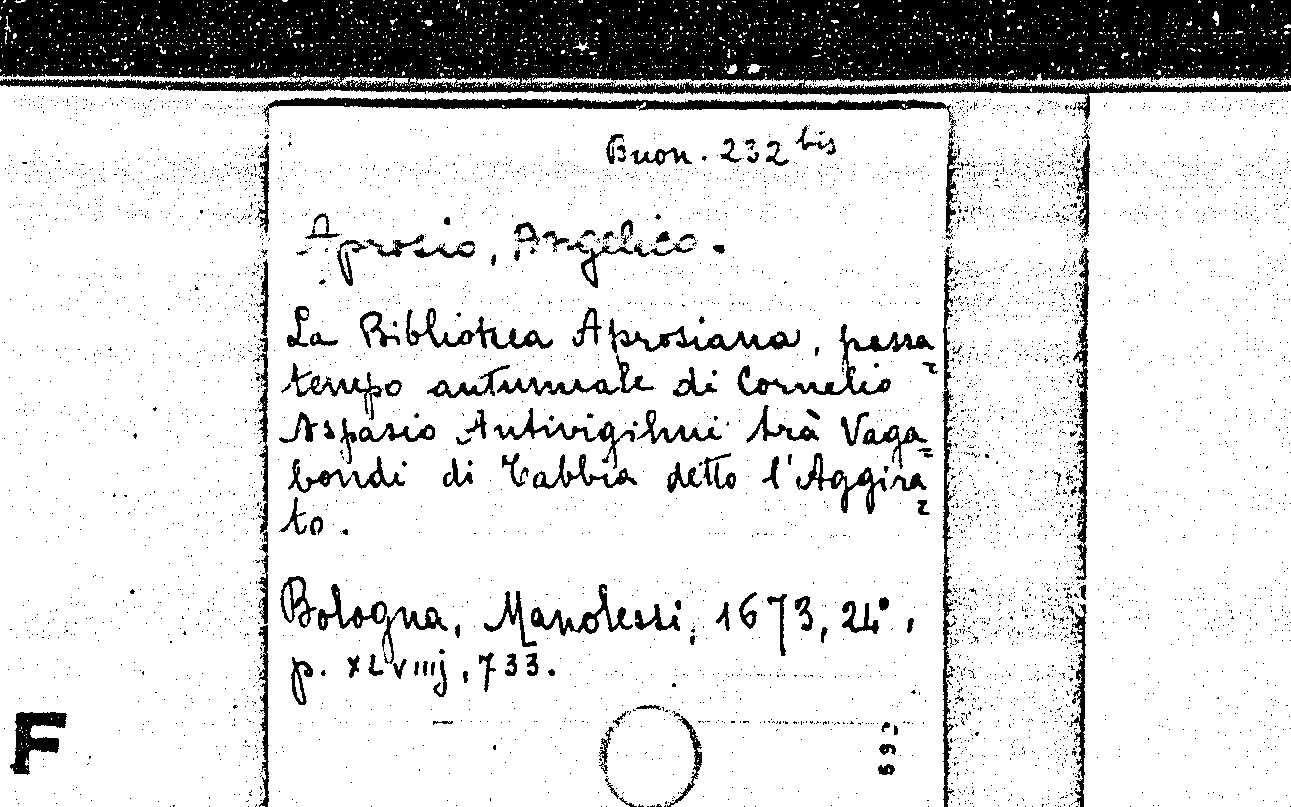 Buon. 232 bis
Aprosio, Angelico.
La Biblioteca Aprosiana, passa=
tempo autumnale di Cornelio
Aspasio Antivigilmi trà Vaga=
bondi di Tabbia detto l'Aggira=
to.
Bologna, Manolessi, 1673, 24°,
p. XLVIIIj, 733.
F